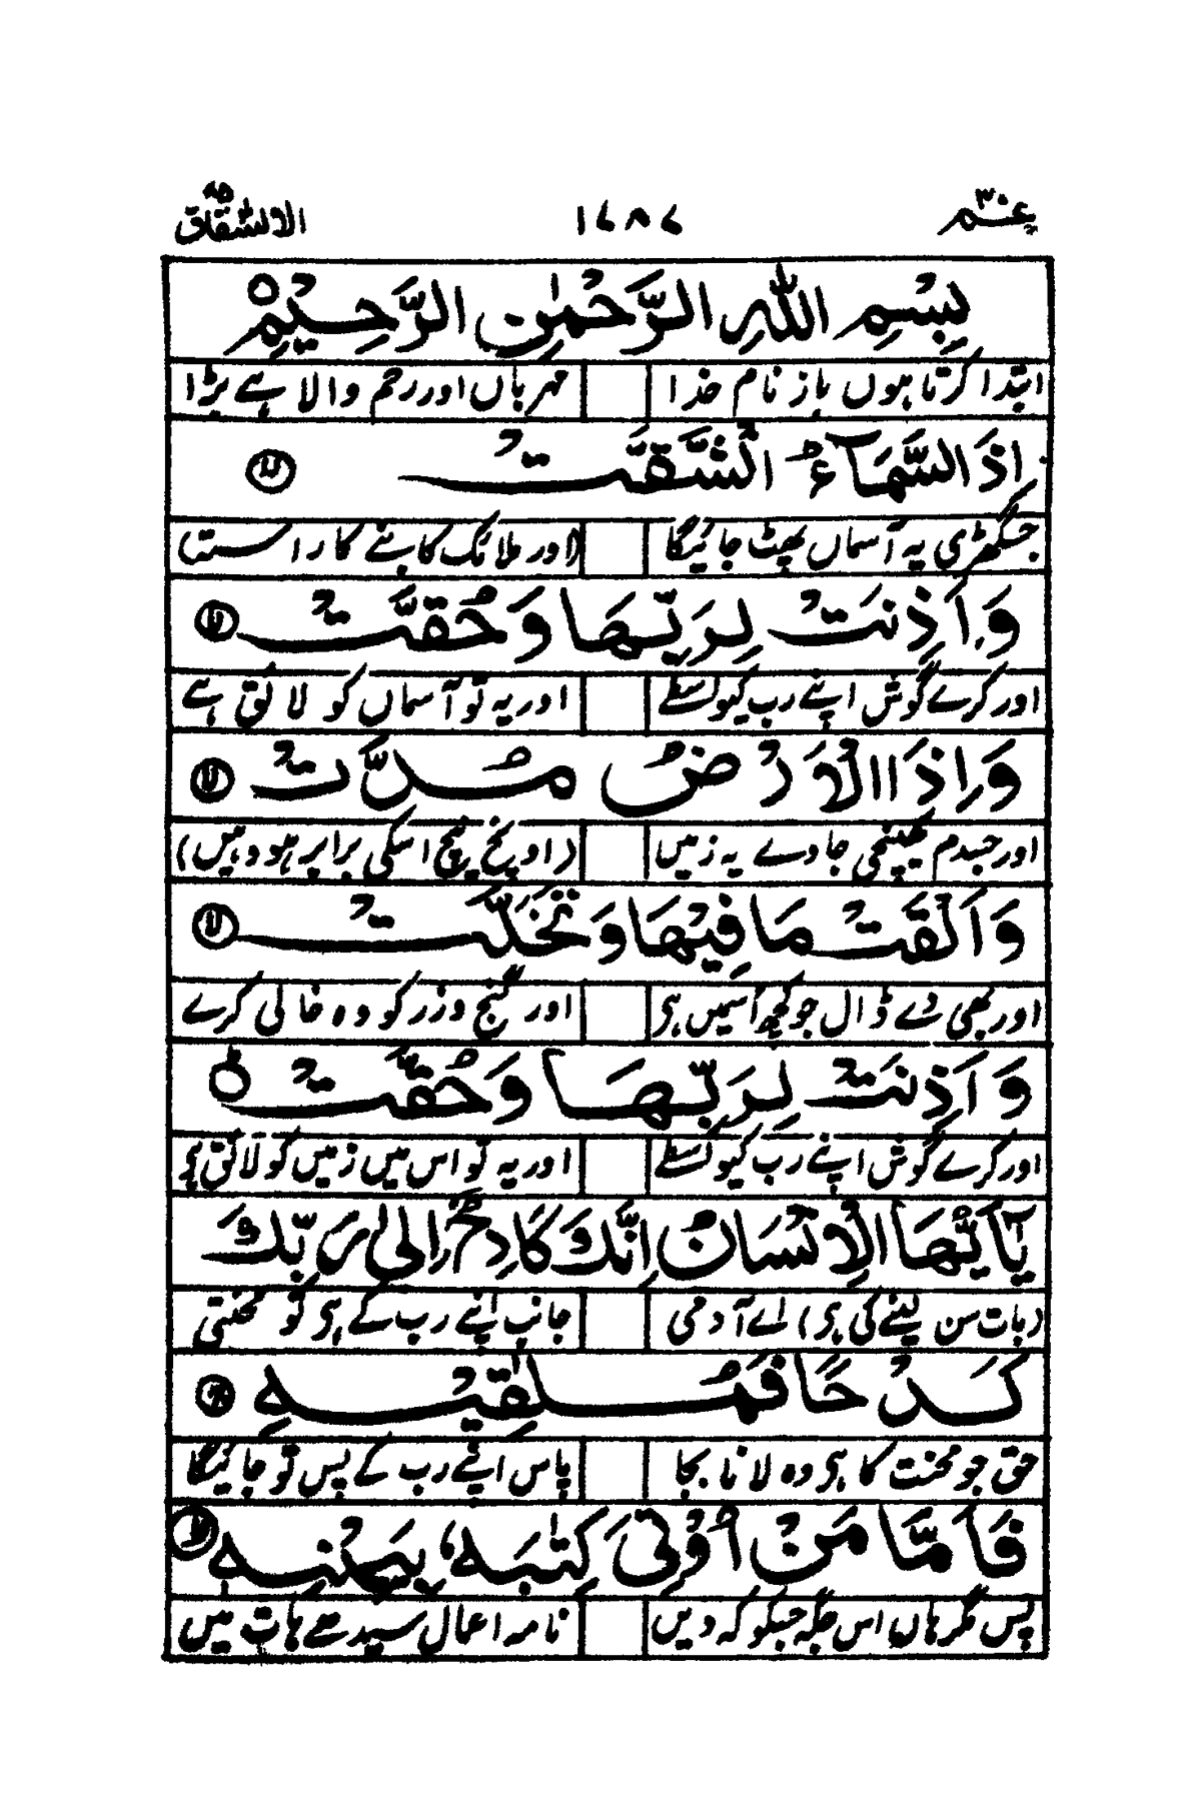 عم ٣٠ ١٧٨٧ الانشقاق ٨٥
بِسْمِ اللهِ الرَّحْمٰنِ الرَّحِيْمِ
ابتدا کرتا ہوں باز نام خدا مہرباں اور رحم والا ہے بڑا
اِذَا السَّمَآءُ انْشَقَّتْ
جس گھڑی یہ آسماں پھٹ جائیگا (اور ملائک کا بنے گا راستا)
وَاَذِنَتْ لِرَبِّهَا وَحُقَّتْ
اور کرے گوش اپنے رب کیواسطے اور یہ تو آسماں کو لائق ہے
وَاِذَا الْاَرْضُ مُدَّتْ
اور جسدم کھینچی جاوے یہ زمیں (اونچ نیچ اسکی برابر ہووہیں)
وَاَلْقَتْ مَا فِيْهَا وَتَخَلَّتْ
اور بھی دے ڈال جو کچھ اسمیں ہی اور گنج وزر کو وہ خالی کرے
وَاَذِنَتْ لِرَبِّهَا وَحُقَّتْ
اور کرے گوش اپنے رب کیواسطے اور یہ تو اس میں زمیں کو لائق ہی
يٰۤاَيُّهَا الْاِنْسَانُ اِنَّكَ كَادِحٌ اِلٰى رَبِّكَ
(بات سن لینے کی ہی) اے آدمی جانب اپنے رب کے ہی تو محنتی
كَدْحًا فَمُلٰقِيْهِ
حق جو محنت کا ہی وہ لانا بجا پاس اپنے رب کے پس تو جائیگا
فَاَمَّا مَنْ اُوْتِيَ كِتٰبَهٗ بِيَمِيْنِهٖ
پس مگر ہاں اس جگہ جسکو کہ دیں نامہ اعمال سیدھے ہات میں